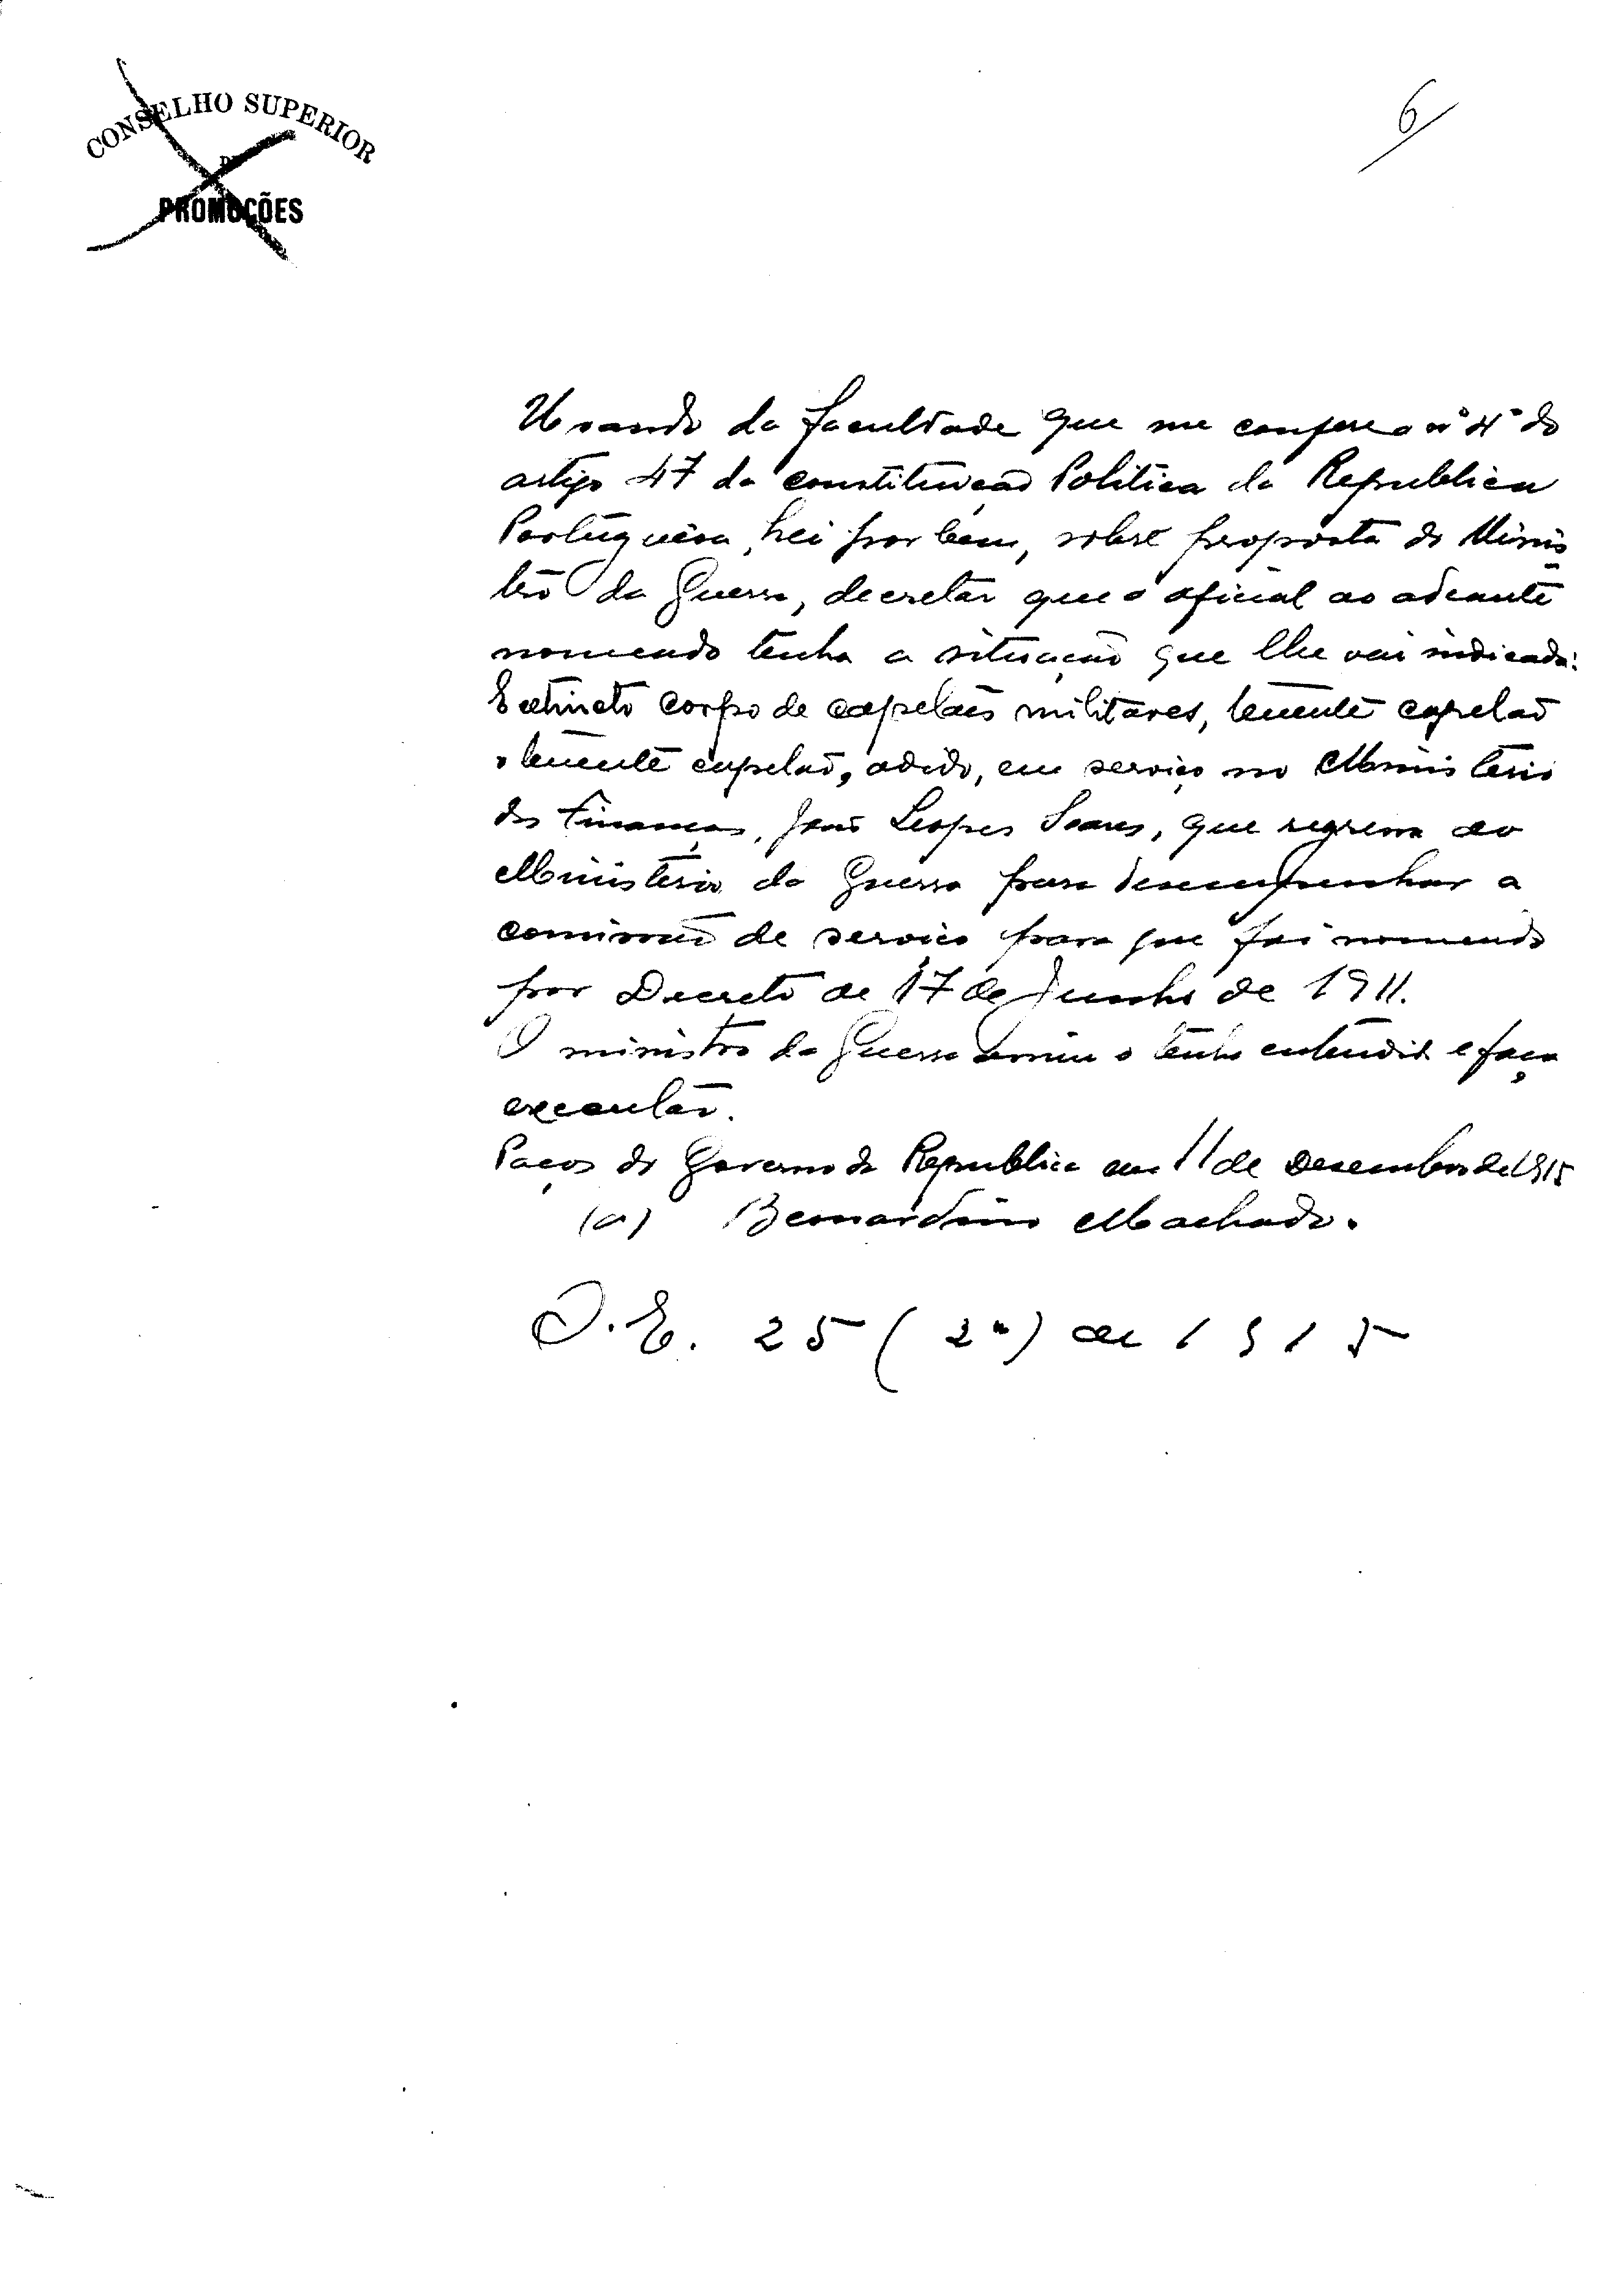 CONSELHO SUPERIOR
DE
PROMOÇÕES
6
Usando da faculdade que me confere o nº 4º do
artigo 47 da constituição Politica da Republica
Portuguêsa, hei por bem, sobre proposta do Minis
tro da Guerra, decretar que o oficial ao adeante
nomeado tenha a situação que lhe vai indicada:
Extincto corpo de capelães militares, tenente capelão
o tenente capelão, adido, em serviço no Ministerio
das Finanças, João Lopes Soares, que regressa ao
Ministerio da Guerra para desempenhar a
comissão de serviço para que foi nomeado
por Decreto de 17 de Junho de 1911.
O ministro da Guerra assim o tenha entendido e faça
executar.
Paços do Governo da Republica em 11 de Desembro de 1915
(a) Bernardino Machado.
O.E. 25 (2ª) de 1915